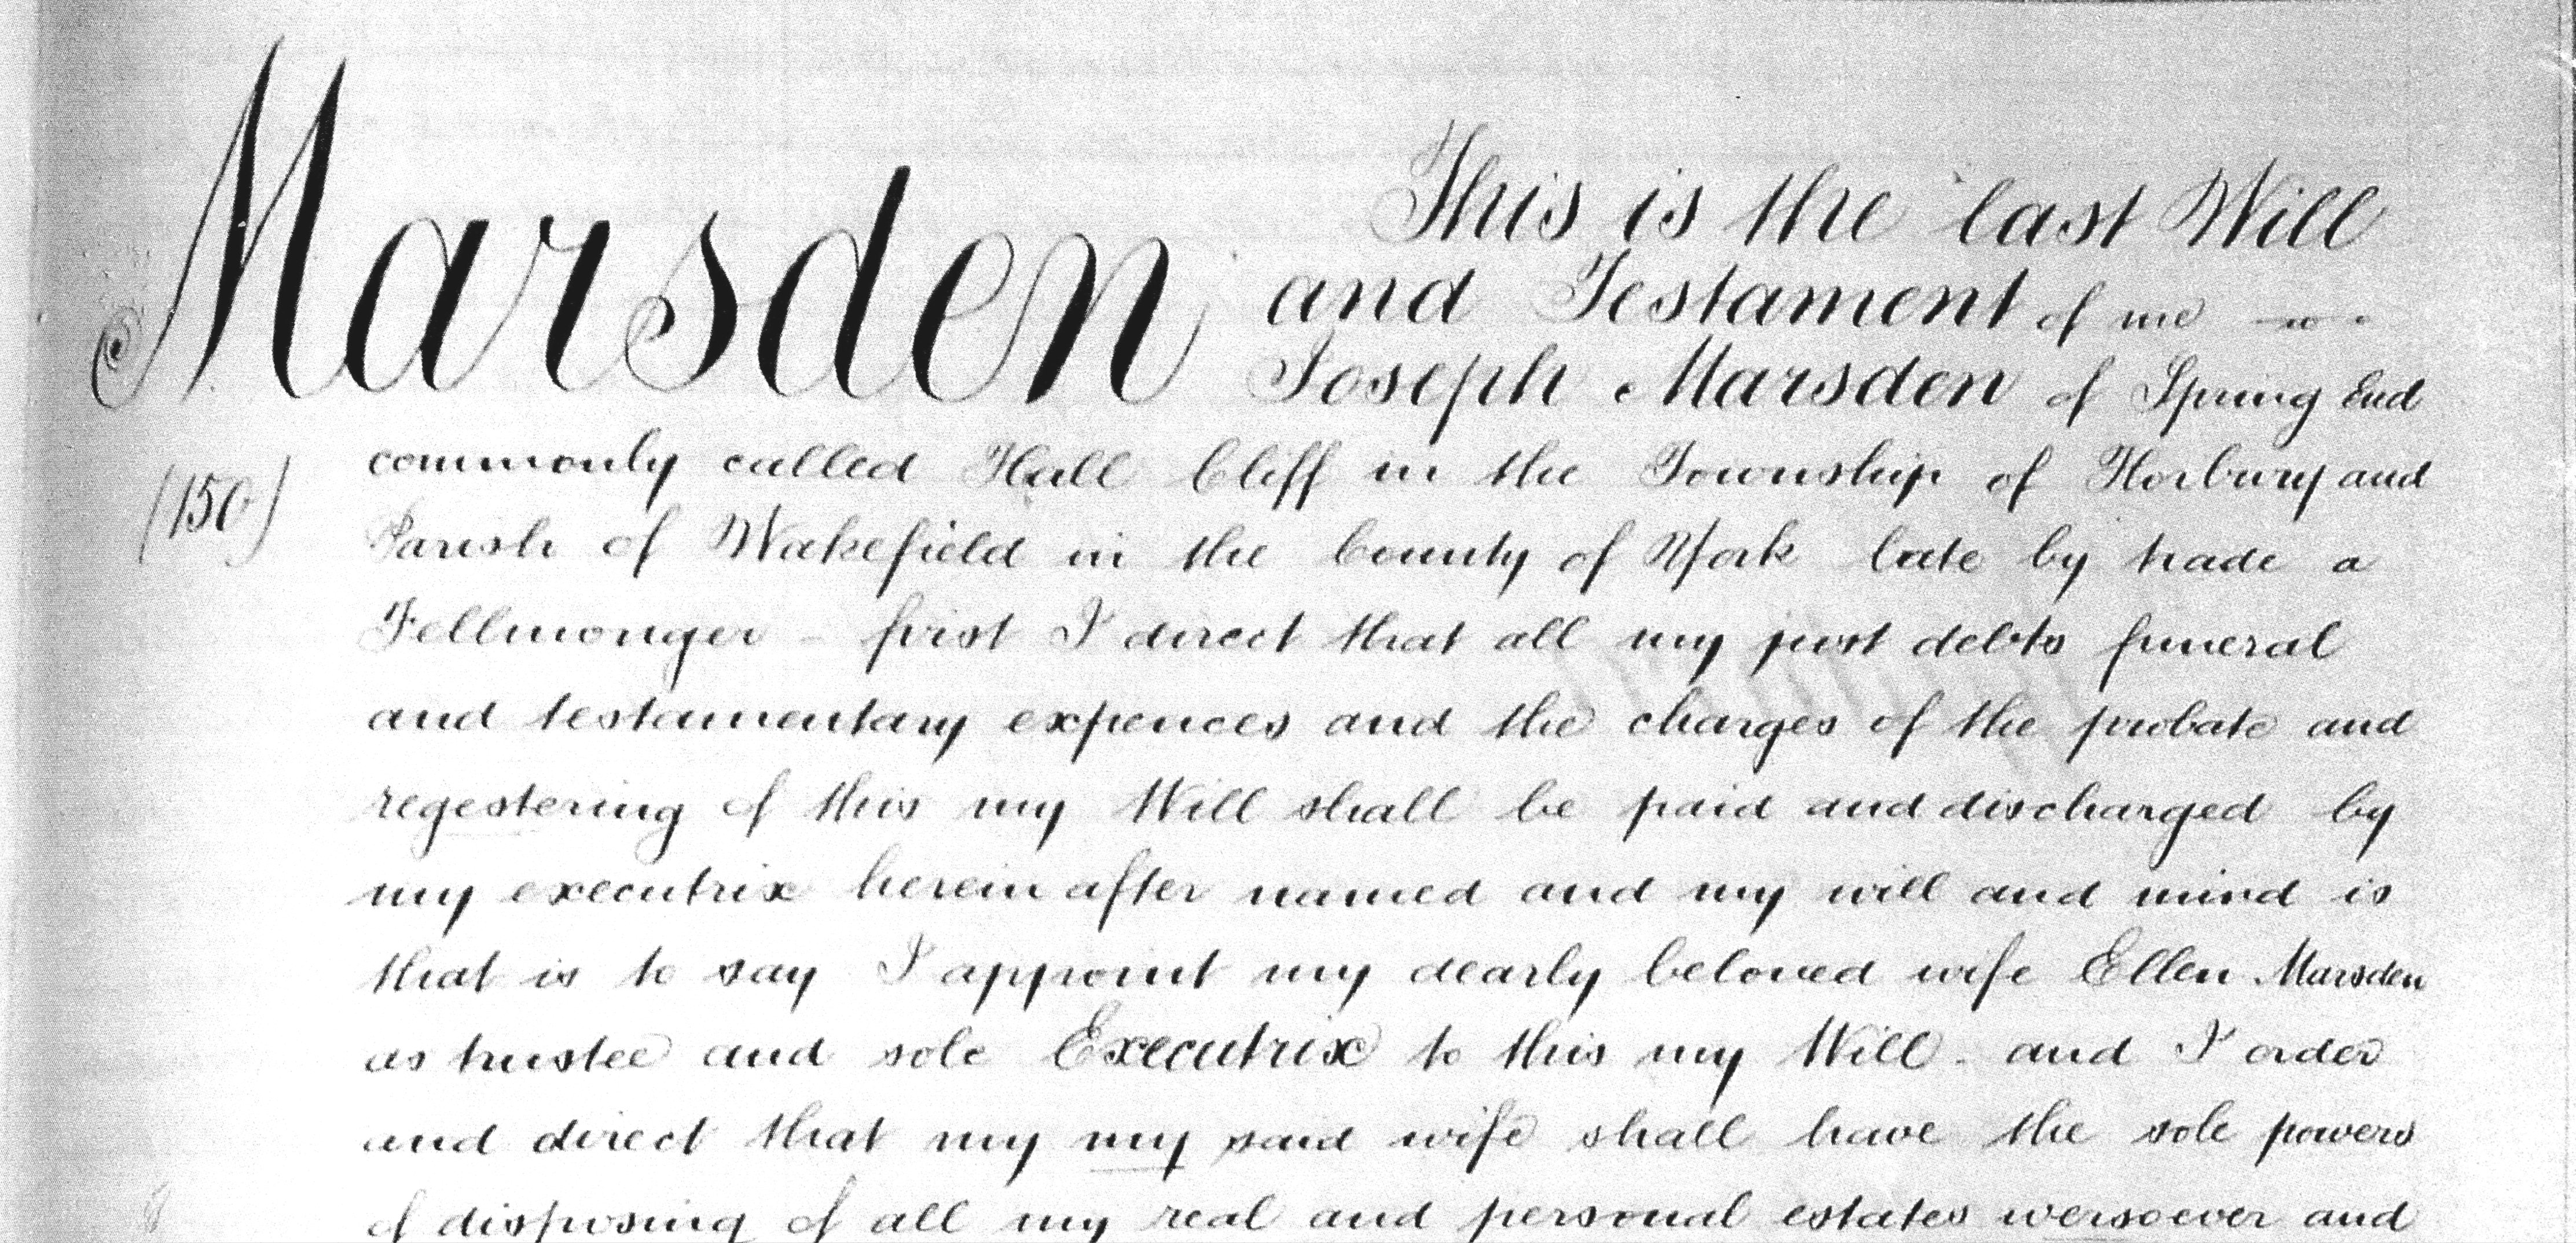 Marsden
This is the last Will
and Testament of me
Joseph Marsden of Spring End
commonly called Hall Cliff in the Township of Horbury and
(150)
Parish of Wakefield in the County of York late by trade a
Fellmonger - first I direct that all my just debts funeral
and testamentary expences and the charges of the probate and
regestering of this my Will shall be paid and discharged by
my executrix herein after named and my will and mind is
that is to say I appoint my dearly beloved wife Ellen Marsden
as trustee and sole Executrix to this my Will - and I order
and direct that my my said wife shall have the sole powers
of disposing of all my real and personal estates wersoever and